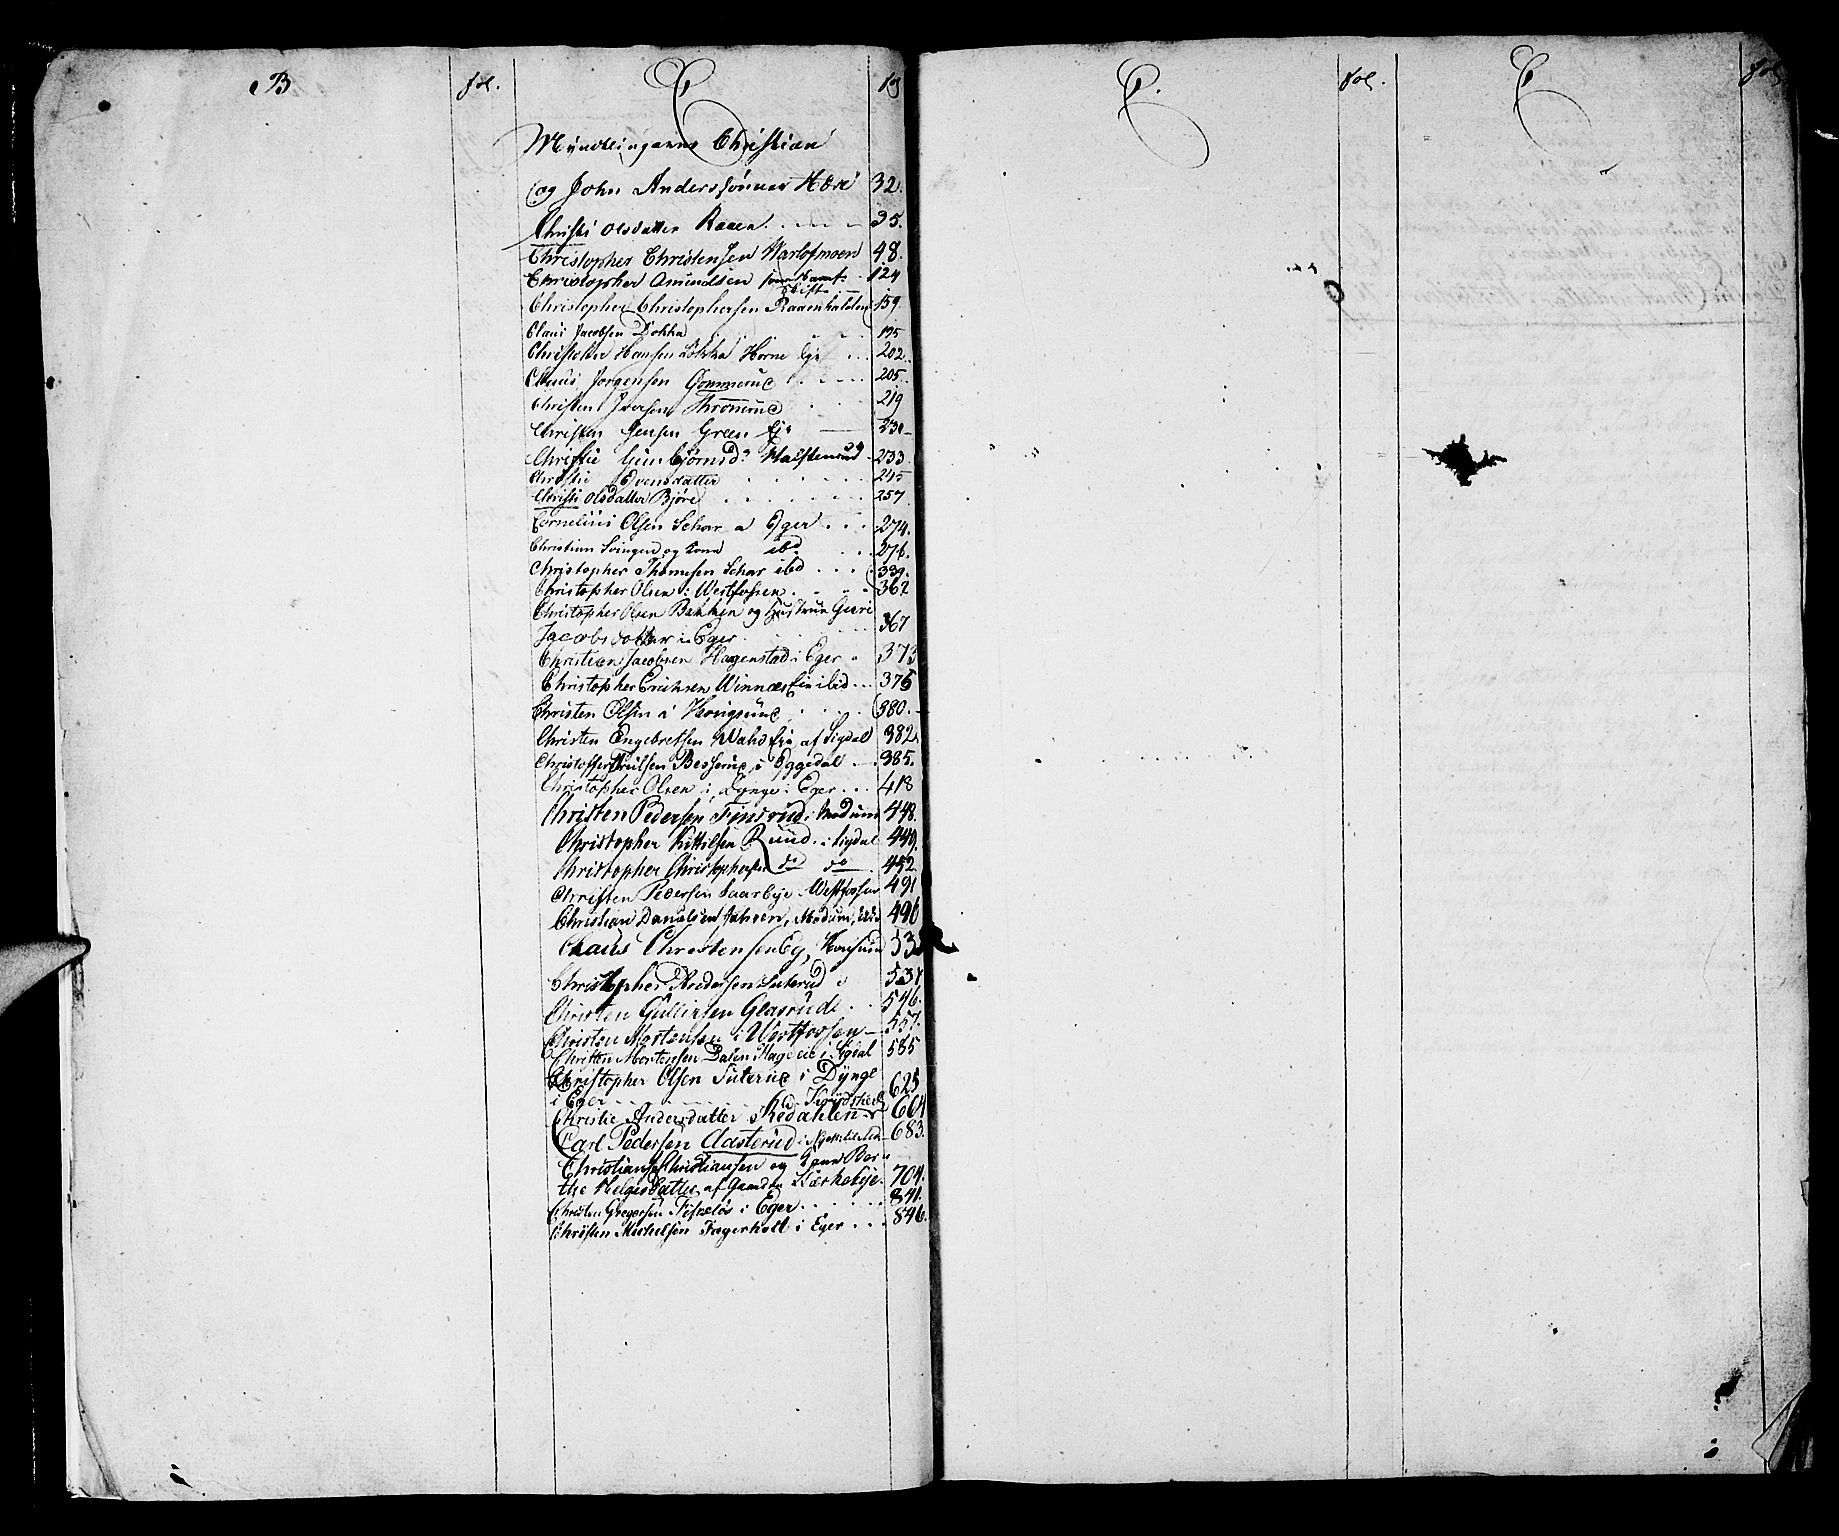 B
fol.
C
fol
Myndlingerne Christian
og John Anderssønner Horé 32.
Christi Olsdatter Raaen 35.
Christopher Christensen Warlofmoen 48.
Christopher Amundsen 124
skift
Christopher Christophersen Raaenhalden 159.
Claus Jacobsen Dokka 195
Hansen Lökka Horne Eje 202.
Claus Jorgensen Gommerud 205.
Christen Iversen 219
Christen Jensen Green Eje 230
Christie Gunbjørnsd: Halstenrud 233.
Christie Evensdatter 245
Christi Olsdatter Björe 257.
Cornelius Olsen Schar a Eger 274.
Christian Svingen og Kone ibd 276.
Christopher Thomesen Schar ibd 339.
Christopher Olsen i Westfossen 362
Christopher Olsen Bakken og Hustrue Guri
Jacobsdatter i Eger 367
Christian Jacobsen Hagenstad i Eger 373
Christopher Erichsen Winnæs Eie ibid 376
Christen Olsen i Kongsrud 380.
Christen Engebretsen Wahs Eie af Sigdal 382.
Christoffer Trulsen Besserud i Eggedal 385.
Christopher Olsen i Dynge i Eger 418
Christen Pedersen Finsrud i Modum 448.
Christopher Kittilsen Ruud i Sigdal 449.
Christopher Christophersen do do 452.
Christen Pedersen Saarbye Westfossen 491
Christian Danielsen Jahren, Modum 496
Claus Christensen Eg, 53
Christopher Andersen Suterud i 537
Christen Gulliksen Glasrud 546.
Christen Mortensen i Westfossen 557.
Christen Mortensen Dalen Hage eie i Sigdal 585
Christopher Olsen Suterud i Dynge
i Eger 625
Christie Andersdatter Rödahlen 664
Carl Pedersen Aasterud i 683.
Christian Christiansen og Kone Ber
the Helgesdatter af Gamle Kirkebye 704.
Christen Gregersen Fiskelös i Eger 841.
Christen Michelsen Fagerholt i Eger 846.
C.
fol.
C
fol